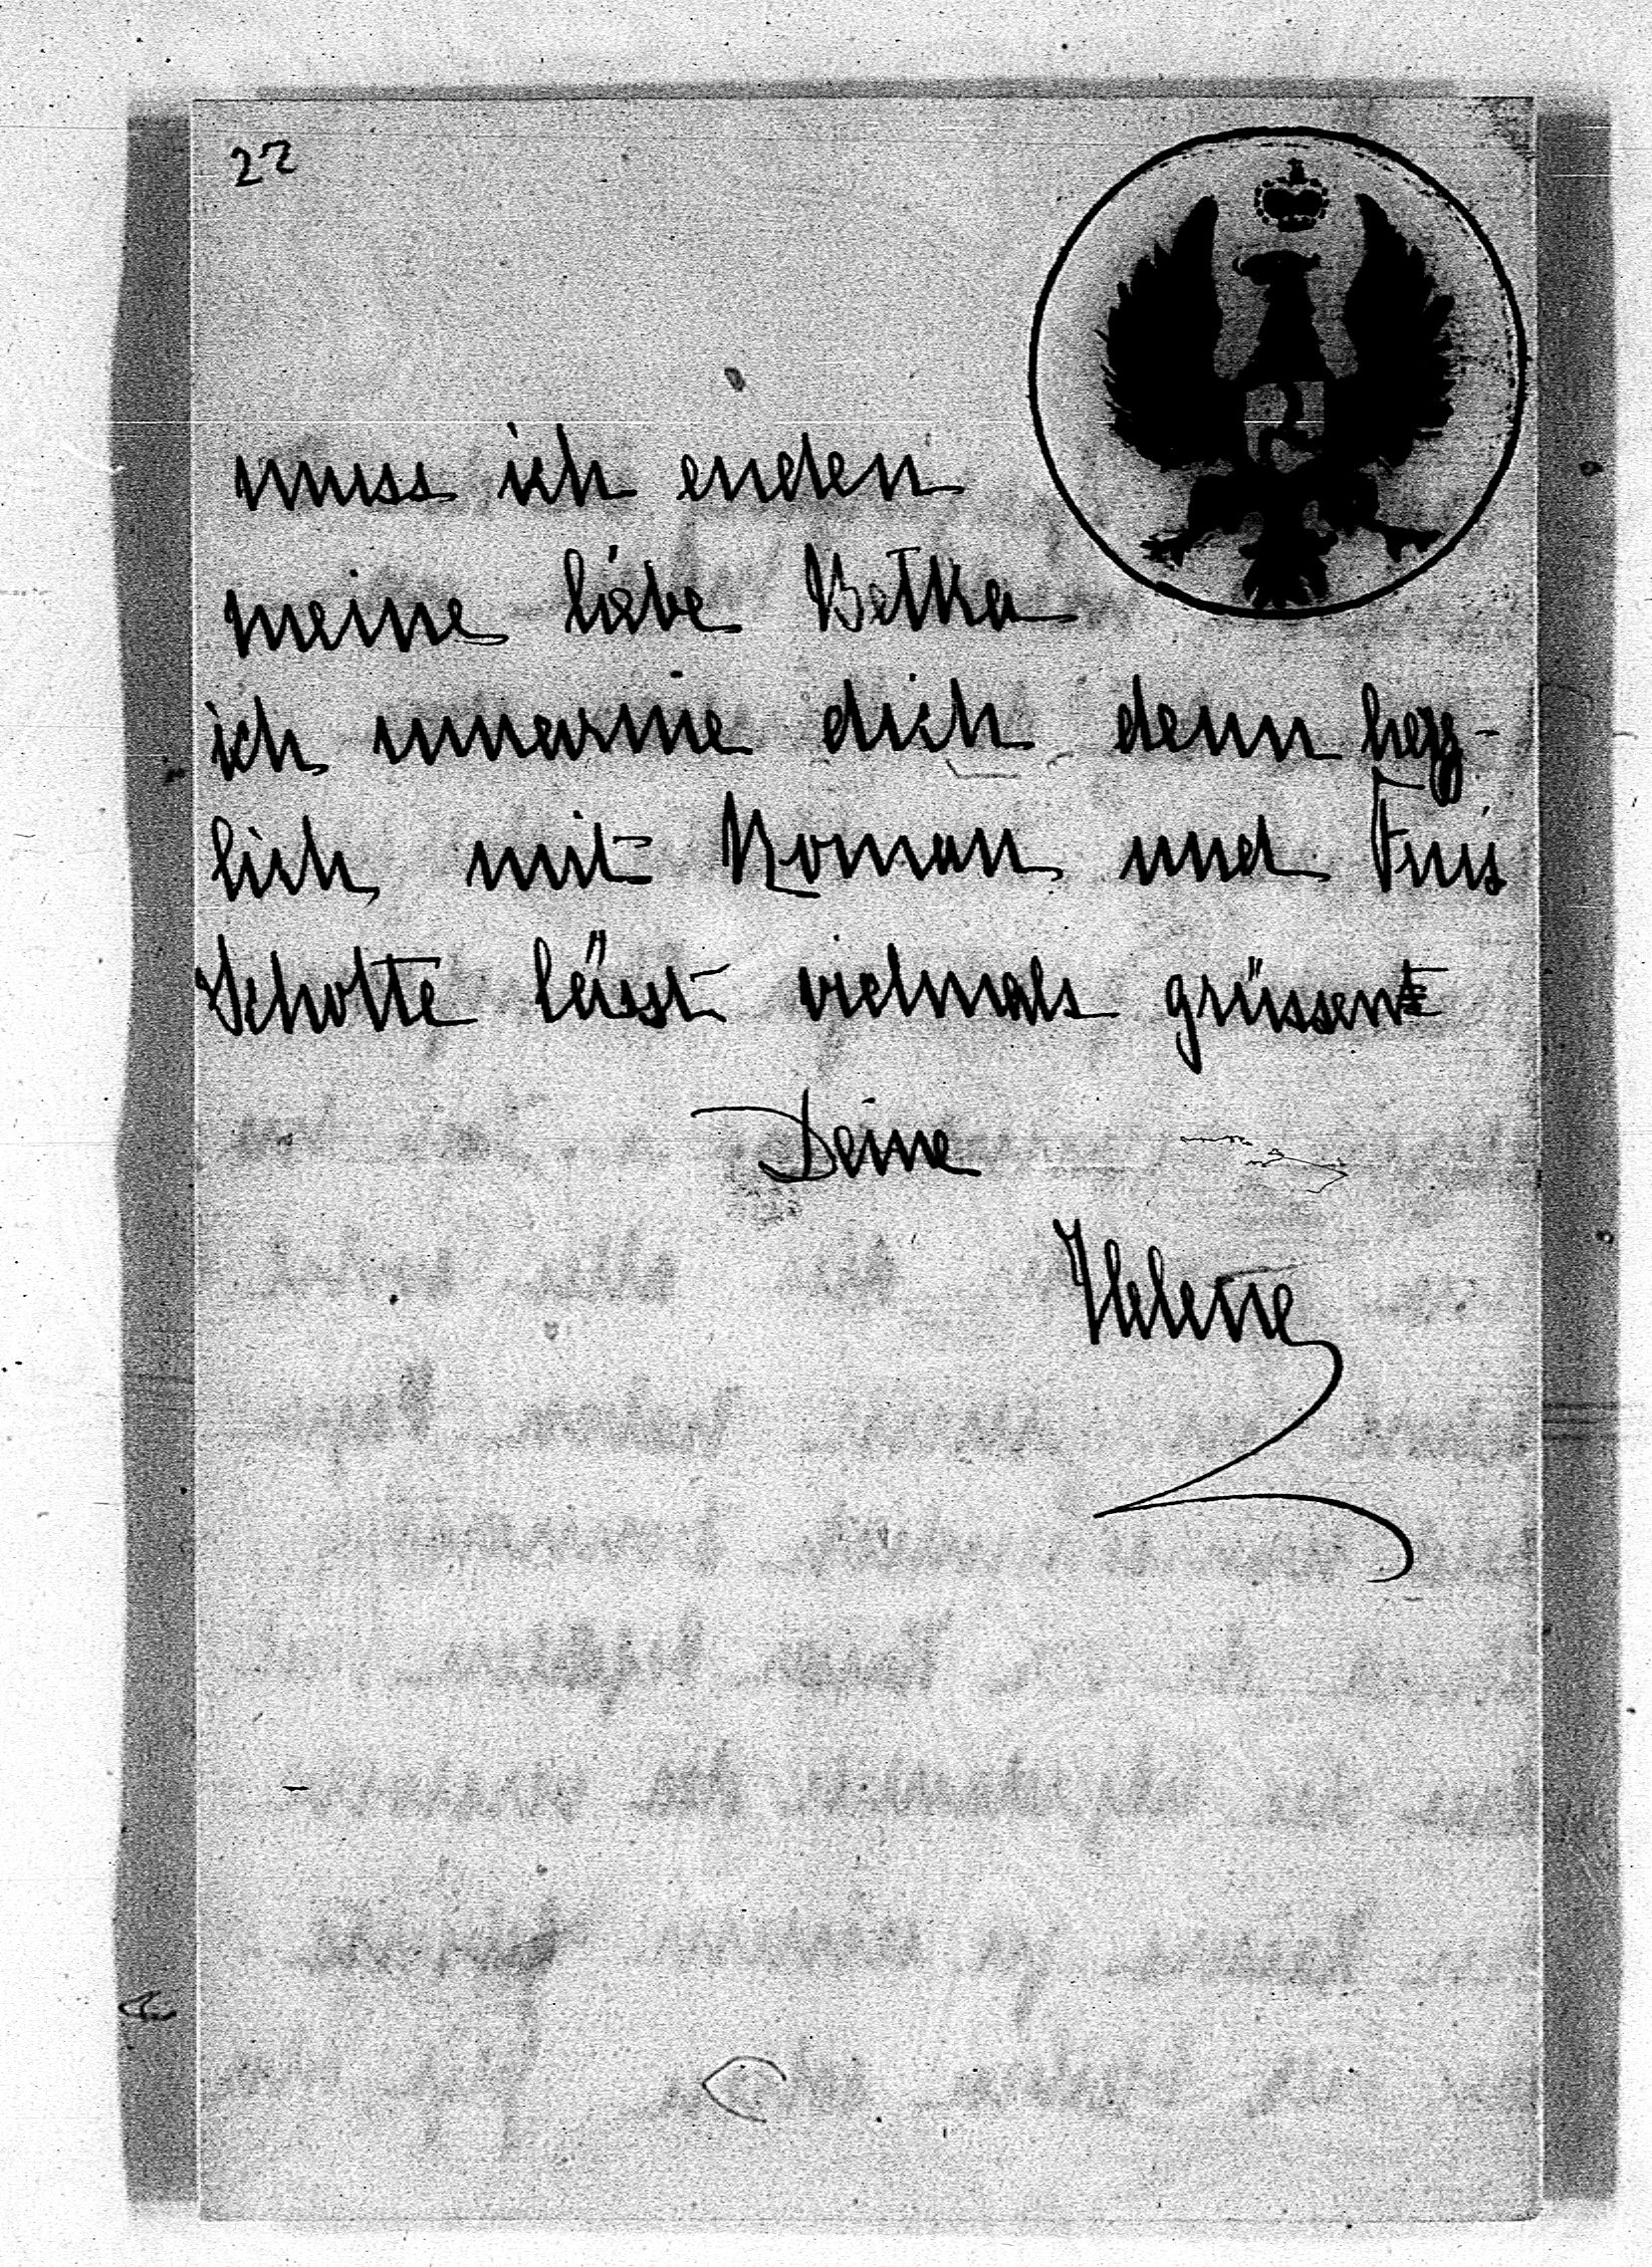 22
muss ich enden
meine liebe Betka
ich umarme dich denn herz-
lich mit Roman und
Schotte lässt vielmals grüssen
Deine
Helene